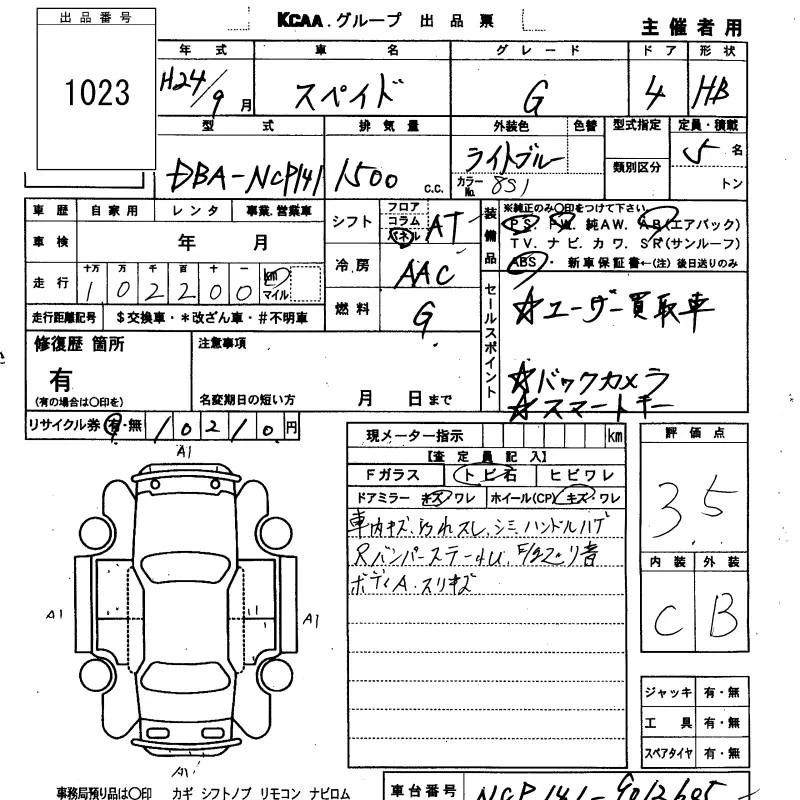 出品番号
1023
KCAA.グループ 出品票
主催者用
年式 車名 グレード ドア 形状
H24/9月 スペイド G 4 HB
型式 排気量 外装色 色替 型式指定 定員・積載
DBA-NCP141 1500 c.c. ライトブルー 5名
カラーNo. 8S1 類別区分 トン
車歴 自家用 レンタ 事業.営業車
車検 年 月
走行 十万 万 千 百 十 一
102200 km マイル
走行距離記号 $交換車・*改ざん車・#不明車
シフト フロア コラム パネル AT
冷房 AAC
燃料 G
装備品 ※純正のみ〇印をつけて下さい
P.S. P.W. 純AW. A.B(エアバック)
TV. ナビ. カワ. SR(サンルーフ)
ABS. 新車保証書←(注) 後日送りのみ
セールスポイント
☆ユーザー買取車
☆バックカメラ
☆スマートキー
修復歴 箇所
有
(有の場合は〇印を)
注意事項
名変期日の短い方 月 日まで
リサイクル券 有・無 10210円
現メーター指示 km
【査定員記入】
Fガラス トビ石 ヒビワレ
ドアミラー キズ・ワレ ホイール(CP) キズ・ワレ
車内キズ.ヨゴレ.スレ.シミ.ハンドルハゲ
Rバンパーステー
ボディA.スリキズ
評価点
3.5
内装 外装
C B
A1
A1
A1
A1
ジャッキ 有・無
工具 有・無
スペアタイヤ 有・無
事務局預り品は〇印 カギ シフトノブ リモコン ナビロム
車台番号 NCP141-9012605